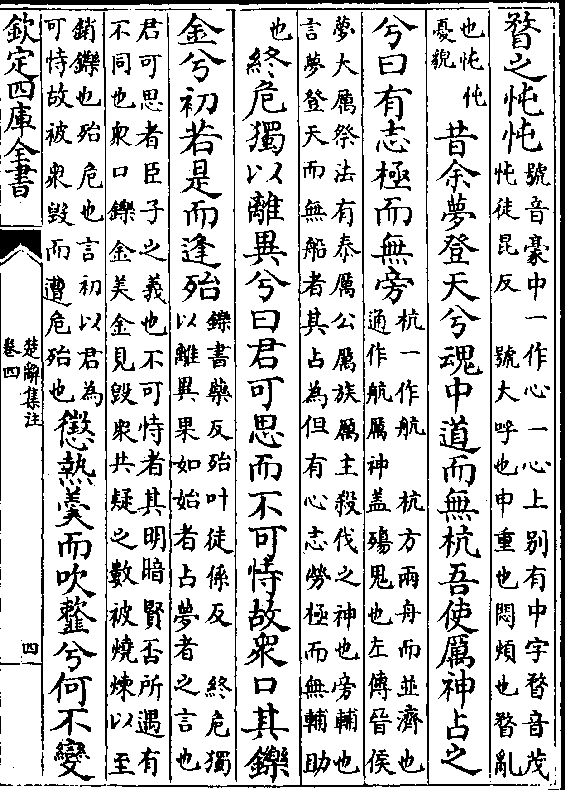 瞀之忳忳
號音豪中一作心一心上別有中字瞀音茂
忳徒昆反 號大呼也申重也悶煩也瞀亂
也忳忳
憂貌
昔余夢登天兮魂中道而無杭吾使厲神占之
兮曰有志極而無旁
杭一作航 杭方兩舟而並濟也
通作航厲神蓋殤鬼也左傳晉侯
夢大厲祭法有泰厲公厲族厲主殺伐之神也旁輔也
言夢登天而無船者其占為但有心志勞極而無輔助
也
終危獨以離異兮曰君可思而不可恃故衆口其鑠
金兮初若是而逢殆
鑠書藥反殆叶徒係反 終危獨
以離異果如始者占夢者之言也
君可思者臣子之義也不可恃者其明暗賢否所遇有
不同也衆口鑠金美金見毁衆共疑之數被燒煉以至
銷鑠也殆危也言初以君為
可恃故被衆毁而遭危殆也
懲熱羹而吹韲兮何不變
欽定四庫全書
楚辭集注
卷四
四